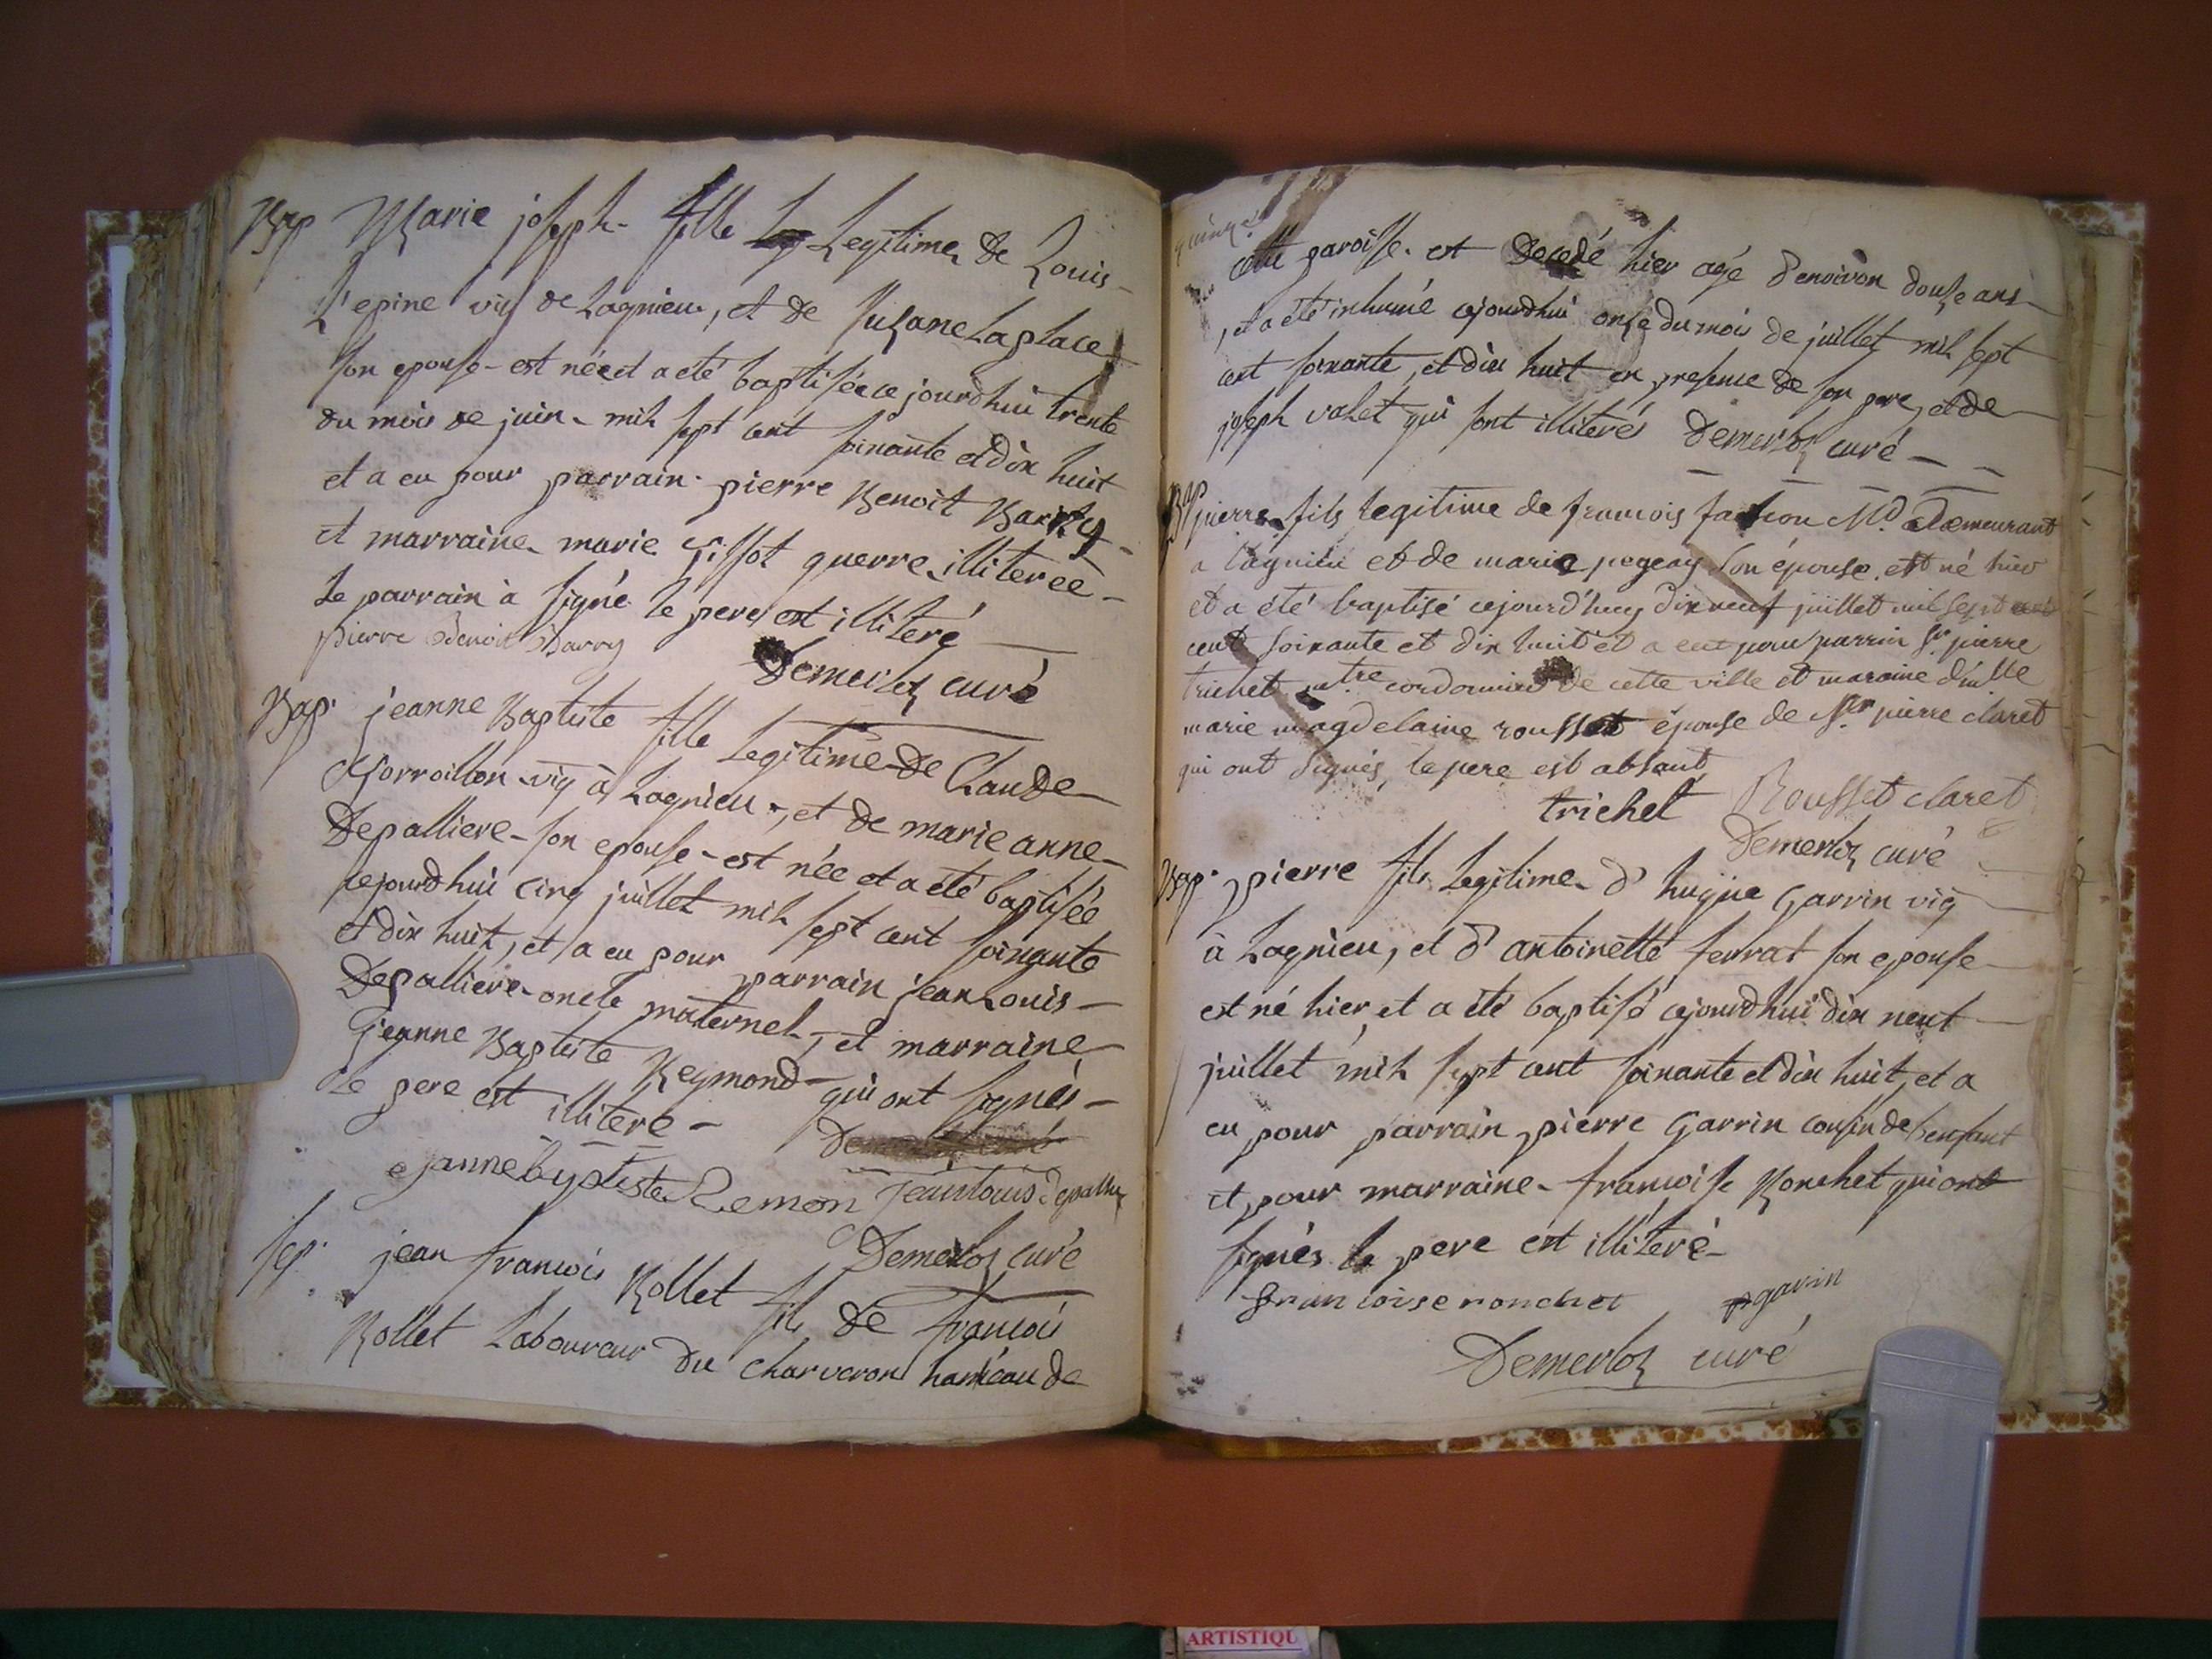 Bap Marie joseph fille leg Legitime de Louis
L'epine vig de Lagnieu, et de Susane Laplace
son epouse est née et a eté baptisée cejourdhui trente
du mois de juin mil sept cent soixante et dix huit
et a eu pour parrain pierre Benoit Barry
et marraine marie guerre illiterée
Le parrain à signé le pere est illiteré
pierre Benoit Barry
Demerloz curé
Bap. jeanne Baptiste fille Legitime de Claude
vig à Lagnieu, et de marie anne
Depalliere son epouse est née et a été baptisée
cejourdhui cinq juillet mil sept cent soixante
et dix huit, et a eu pour parrain jean Louis
Depalliere oncle maternel, et marraine
jeanne Baptiste Reymond qui ont signés
le pere est illiteré
janne baptiste Remon jean louis depallier
Demerloz curé
sep. jean francois Rollet fils de francois
Rollet Laboureur du charveron hameau de
cette paroisse est Decedé hier agé denviron douse ans
, et a été inhumé cejourdhui onse du mois de juillet mil sept
cent soixante, et dix huit en presence de son pere, et de
joseph valet qui sont illiterés Demerloz curé
Bap pierre fils legitime de francois Md demeurant
a lagnieu et de marie pegeay son épouse est né hier
et a été baptisé cejourd'huy dix neuf juillet mil sept
cent soixante et dix huit et a eut pour parrin sr pierre
trichet mtre cordonnier de cette ville et maraine dlle
marie magdelaine rousset épouse de sr pierre claret
qui ont signés, le pere est absant
trichet Rousset claret
Demerloz curé
Bap. pierre fils Legitime d'hugue Garrin vig
à Lagnieu, et d'antoinette ferrat son epouse
est né hier, et a été baptisé cejourdhui dix neuf
juillet mil sept cent soixante et dix huit, et a
eu pour parrain pierre Garrin cousin de l'enfant
et pour marraine francoise Ronchet qui ont
signés le pere est illiteré
francoise ronchet pgarin
Demerloz curé
ARTISTIQU